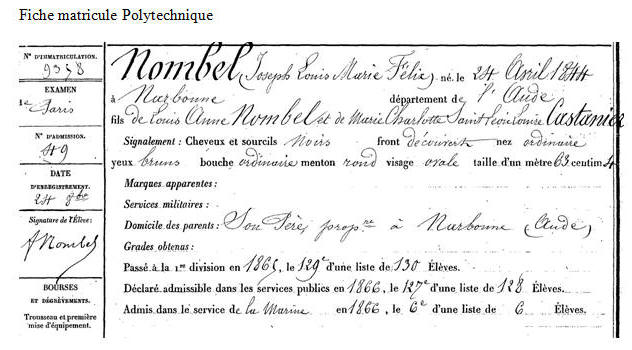 Fiche matricule Polytechnique
N° D'IMMATRICULATION.
9358
EXAMEN
1er Paris
N° D'ADMISSION.
49
DATE
D'ENREGISTREMENT.
24 9bre
Signature de l'Élève:
Nombel
BOURSES
ET DÉGRÈVEMENTS.
Trousseau et première
mise d'équipement.
Nombel (Joseph Louis Marie Félix) né, le 24 Avril 1844
à Narbonne département de l'Aude
fils de Louis Anne Nombel et de Marie Charlotte Saint Léon Louise Castanier
Signalement : Cheveux et sourcils Noirs front découvert nez ordinaire
yeux bruns bouche ordinaire menton rond visage ovale taille d'un mètre 63 centim 4
Marques apparentes :
Services militaires :
Domicile des parents : Son Père, propre à Narbonne (Aude)
Grades obtenus :
Passé à la 1re division en 1865, le 129e d'une liste de 130 Élèves.
Déclaré admissible dans les services publics en 1866, le 127e d'une liste de 128 Élèves.
Admis dans le service de la Marine en 1866, le 6e d'une liste de 6 Élèves.